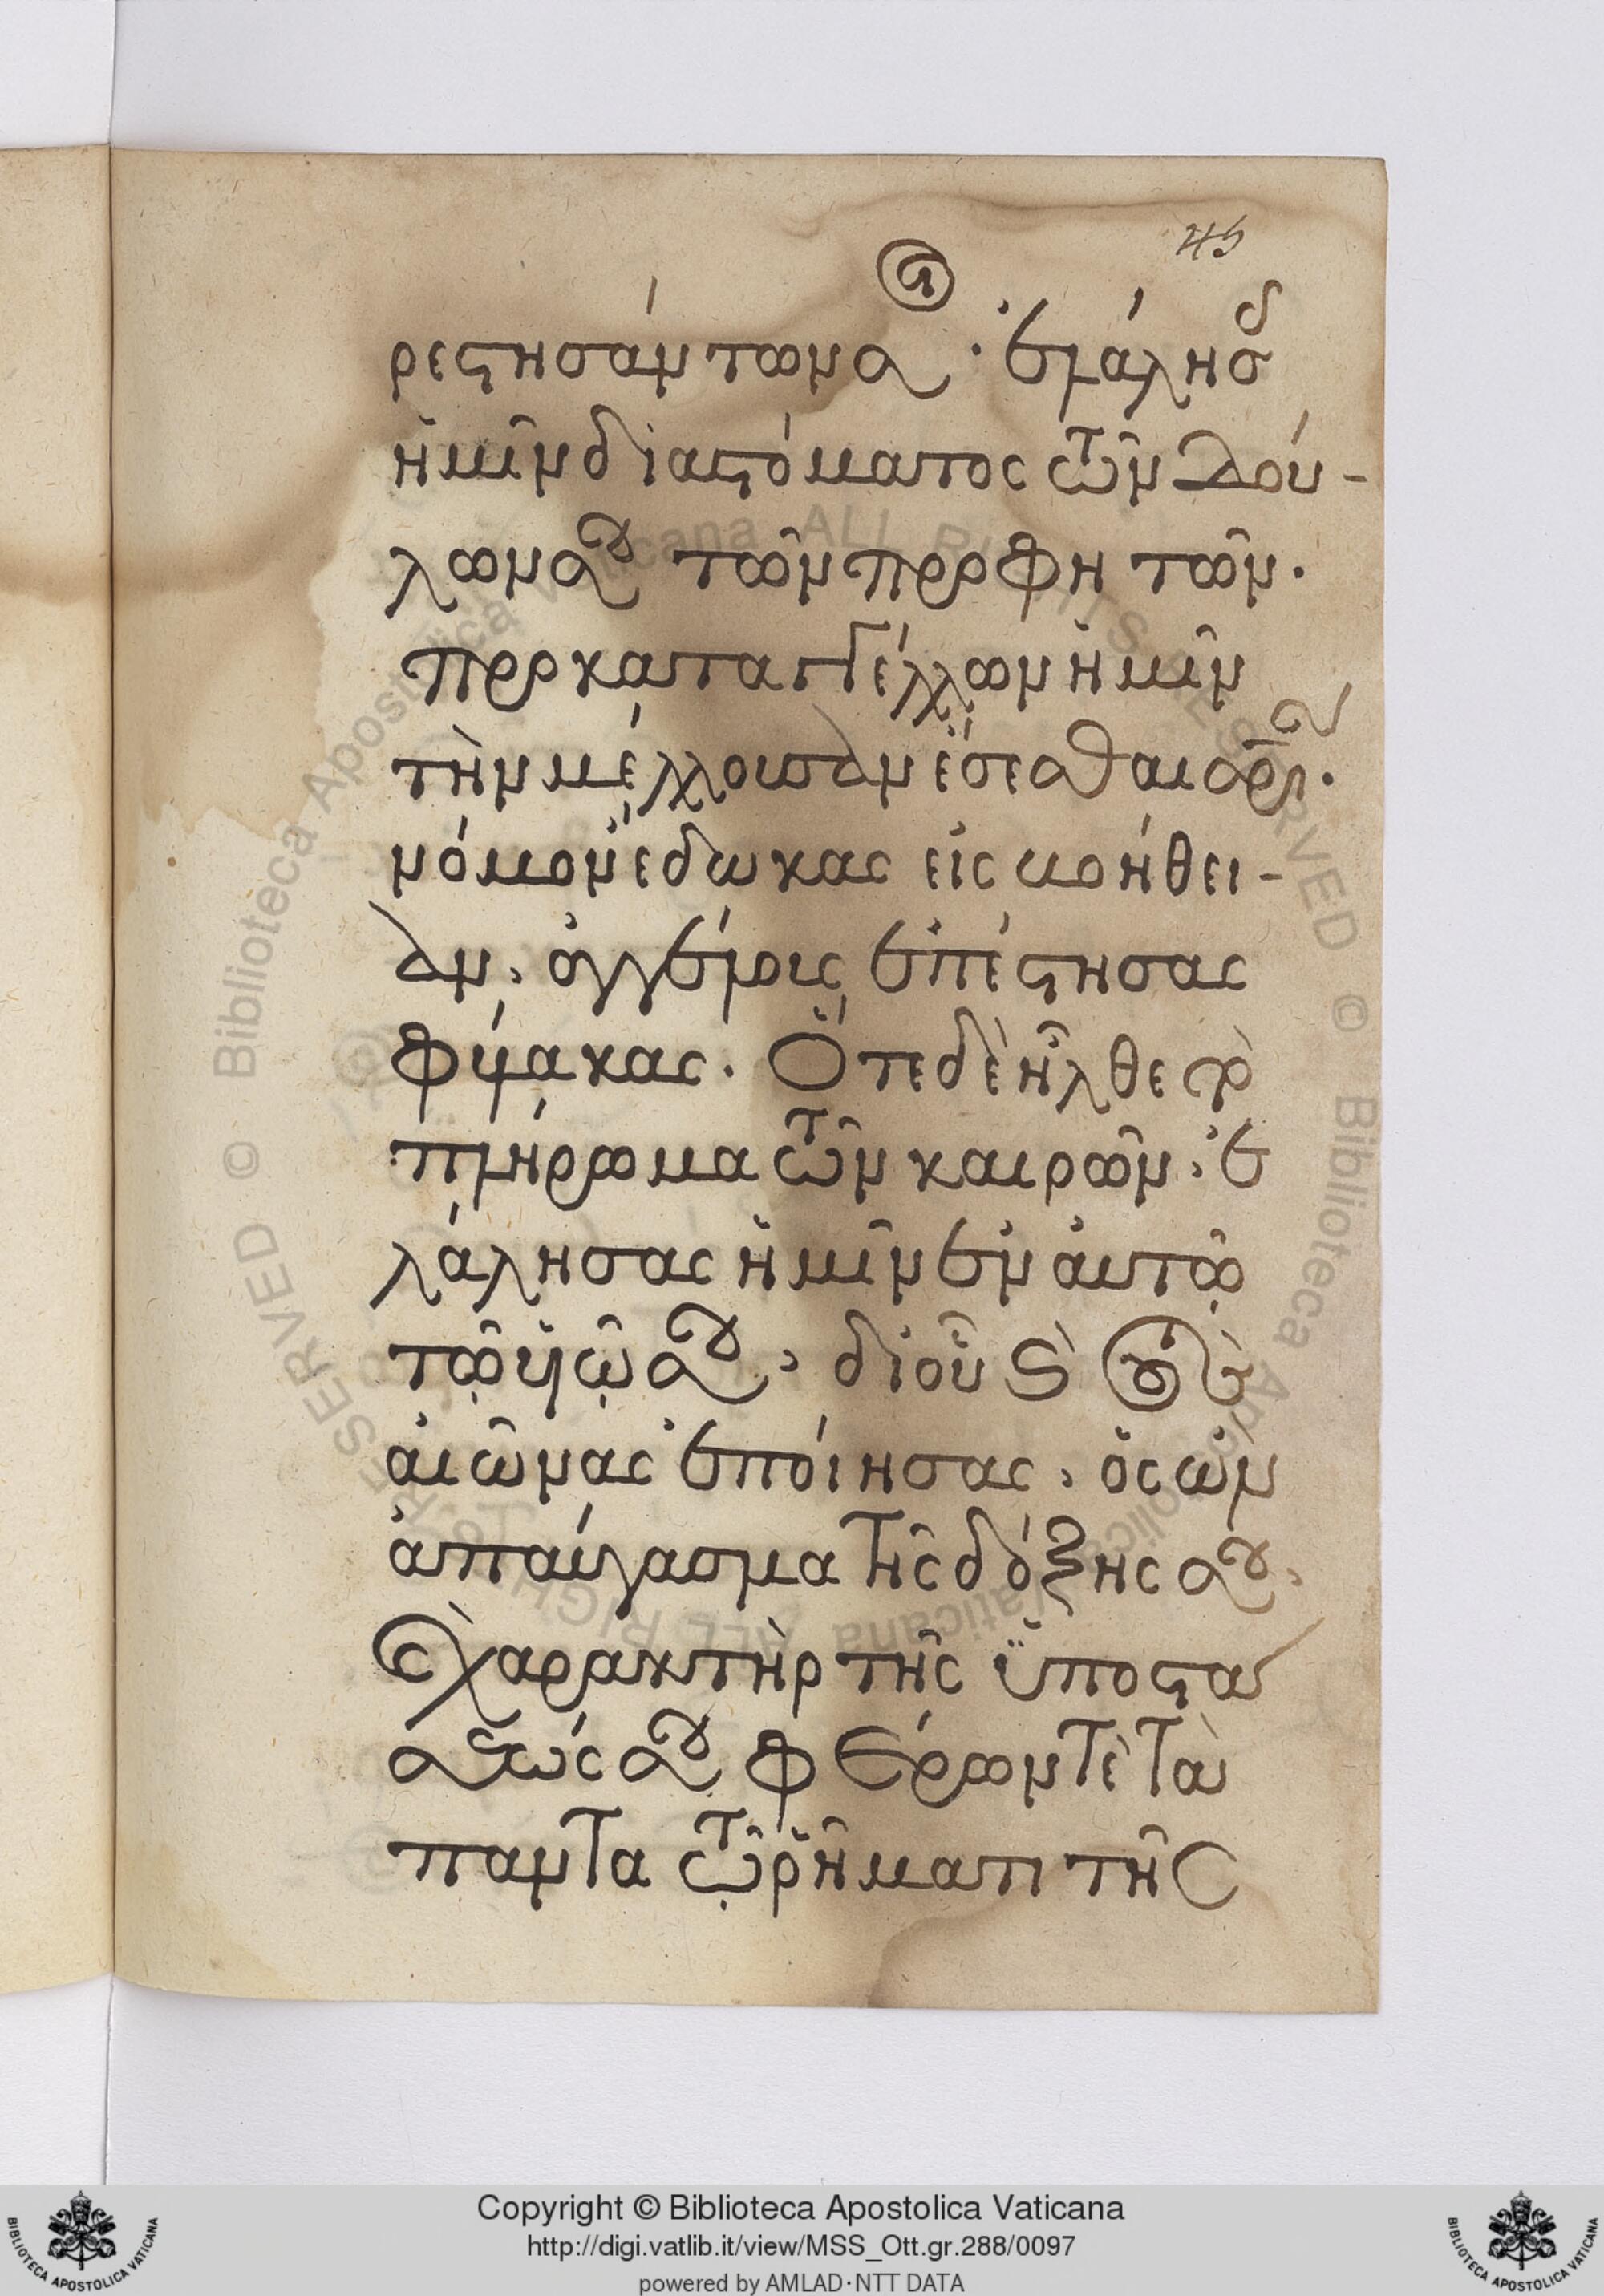 45
ρεστησάντων σοι· ἐλάλησας
ἡμῖν διὰ στόματος τῶν δού-
λων σου τῶν προφητῶν·
προκαταγγέλλων ἡμῖν
τὴν μέλλουσαν ἔσεσθαι σριαν·
νόμον ἔδωκας εἰς βοήθει-
αν, ἀγγέλους ἐπέστησας
φύλακας. Ὅτε δὲ ἦλθε τὸ
πλήρωμα τῶν καιρῶν, ἐ
λάλησας ἡμῖν ἐν αὐτῷ
τῷ υἱῷ σου, δι' οὗ καὶ τοὺς
αἰῶνας ἐποίησας, ὃς ὢν
ἀπαύγασμα τῆς δόξης σου,
καὶ χαρακτὴρ τῆς ὑποστά
σεώς σου φέρων τε τὰ
πάντα τῷ ῥήματι τῆς
Copyright © Biblioteca Apostolica Vaticana
http://digi.vatlib.it/view/MSS_Ott.gr.288/0097
powered by AMLAD·NTT DATA